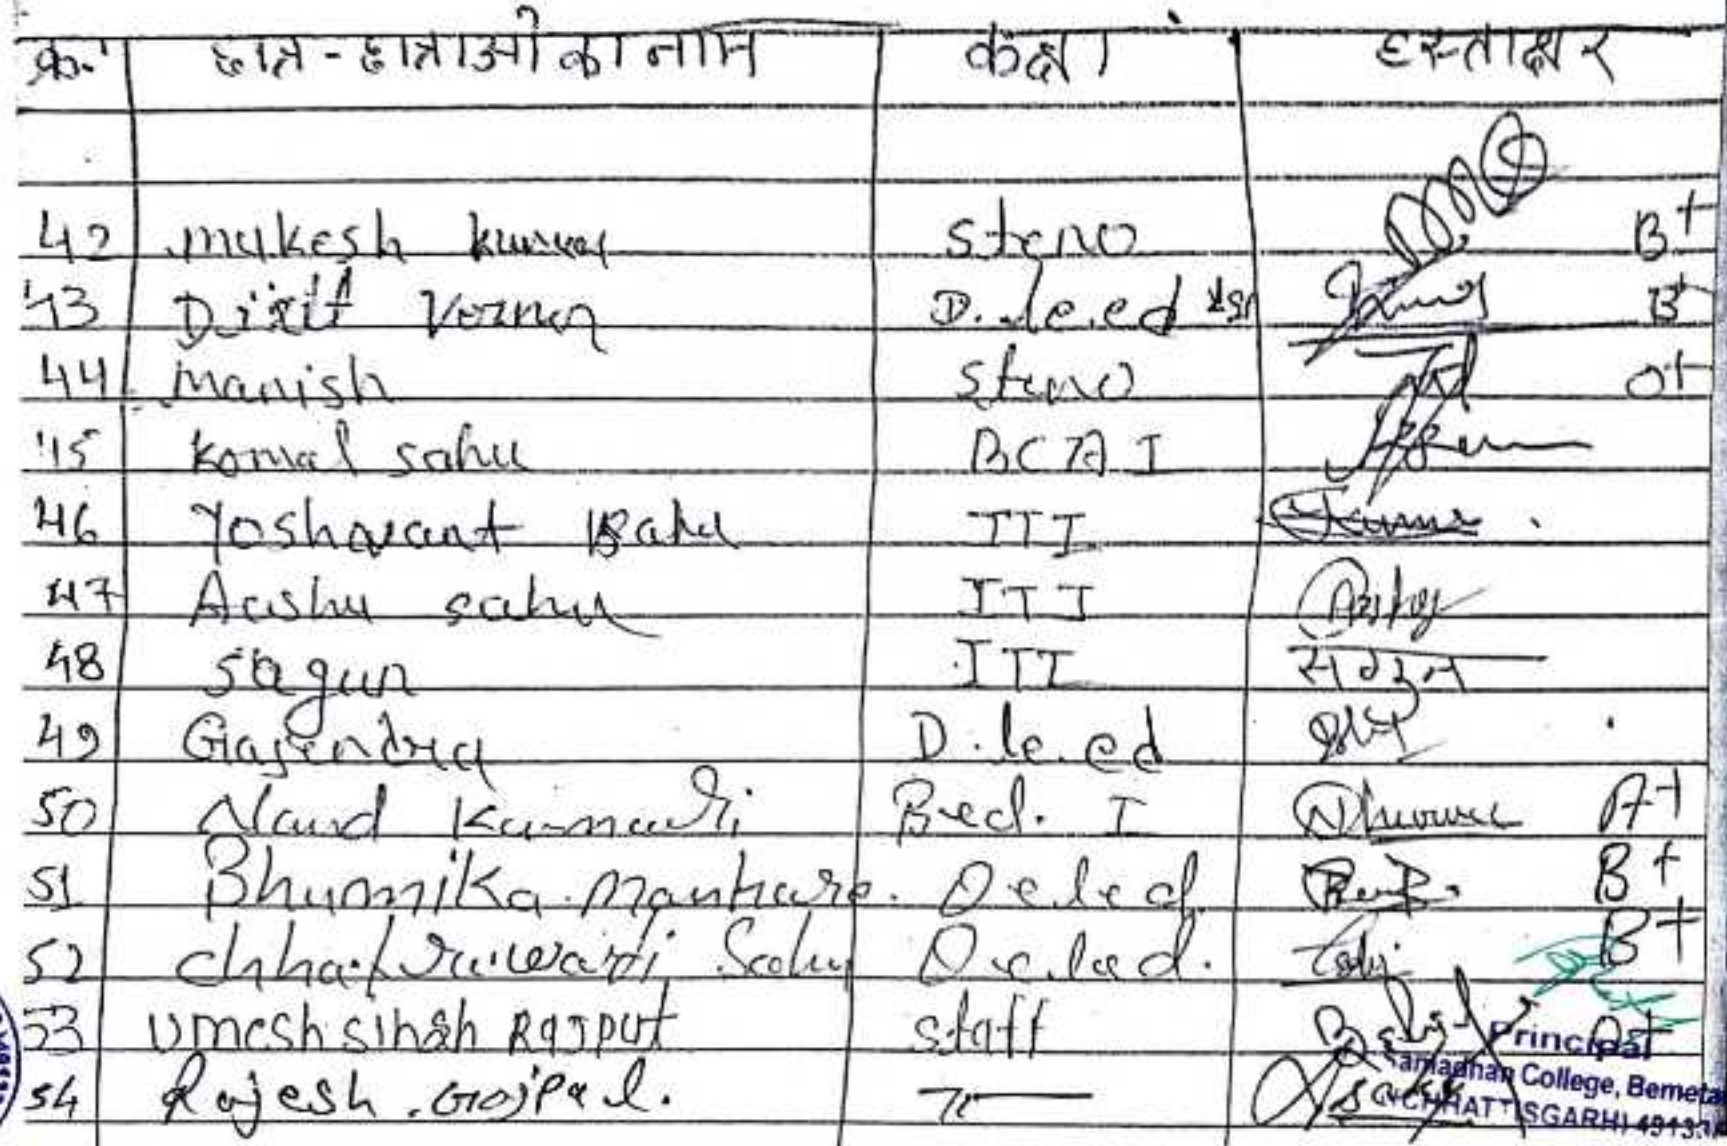 क्र. छात्र-छात्राओं का नाम कक्षा हस्ताक्षर
42 mukesh kumar steno B+
43 Dixit Verma D.le.ed 1st B+
44 manish steno O+
45 Komal sahu
46 Yoshwant ITI
47 Aashu sahu ITI
48 sagun ITI सगुन
49 Gajendra D.le.ed
50 Nand Kumari B.ed. I A+
51 Bhumika manhare. D.e.l.ed B+
52 Sahu D.e.l.ed. B+
53 umesh singh Rajput staff
54 Rajesh. Gojpal.
Principal
Samadhan College, Bemetara
(CHHATTISGARH)